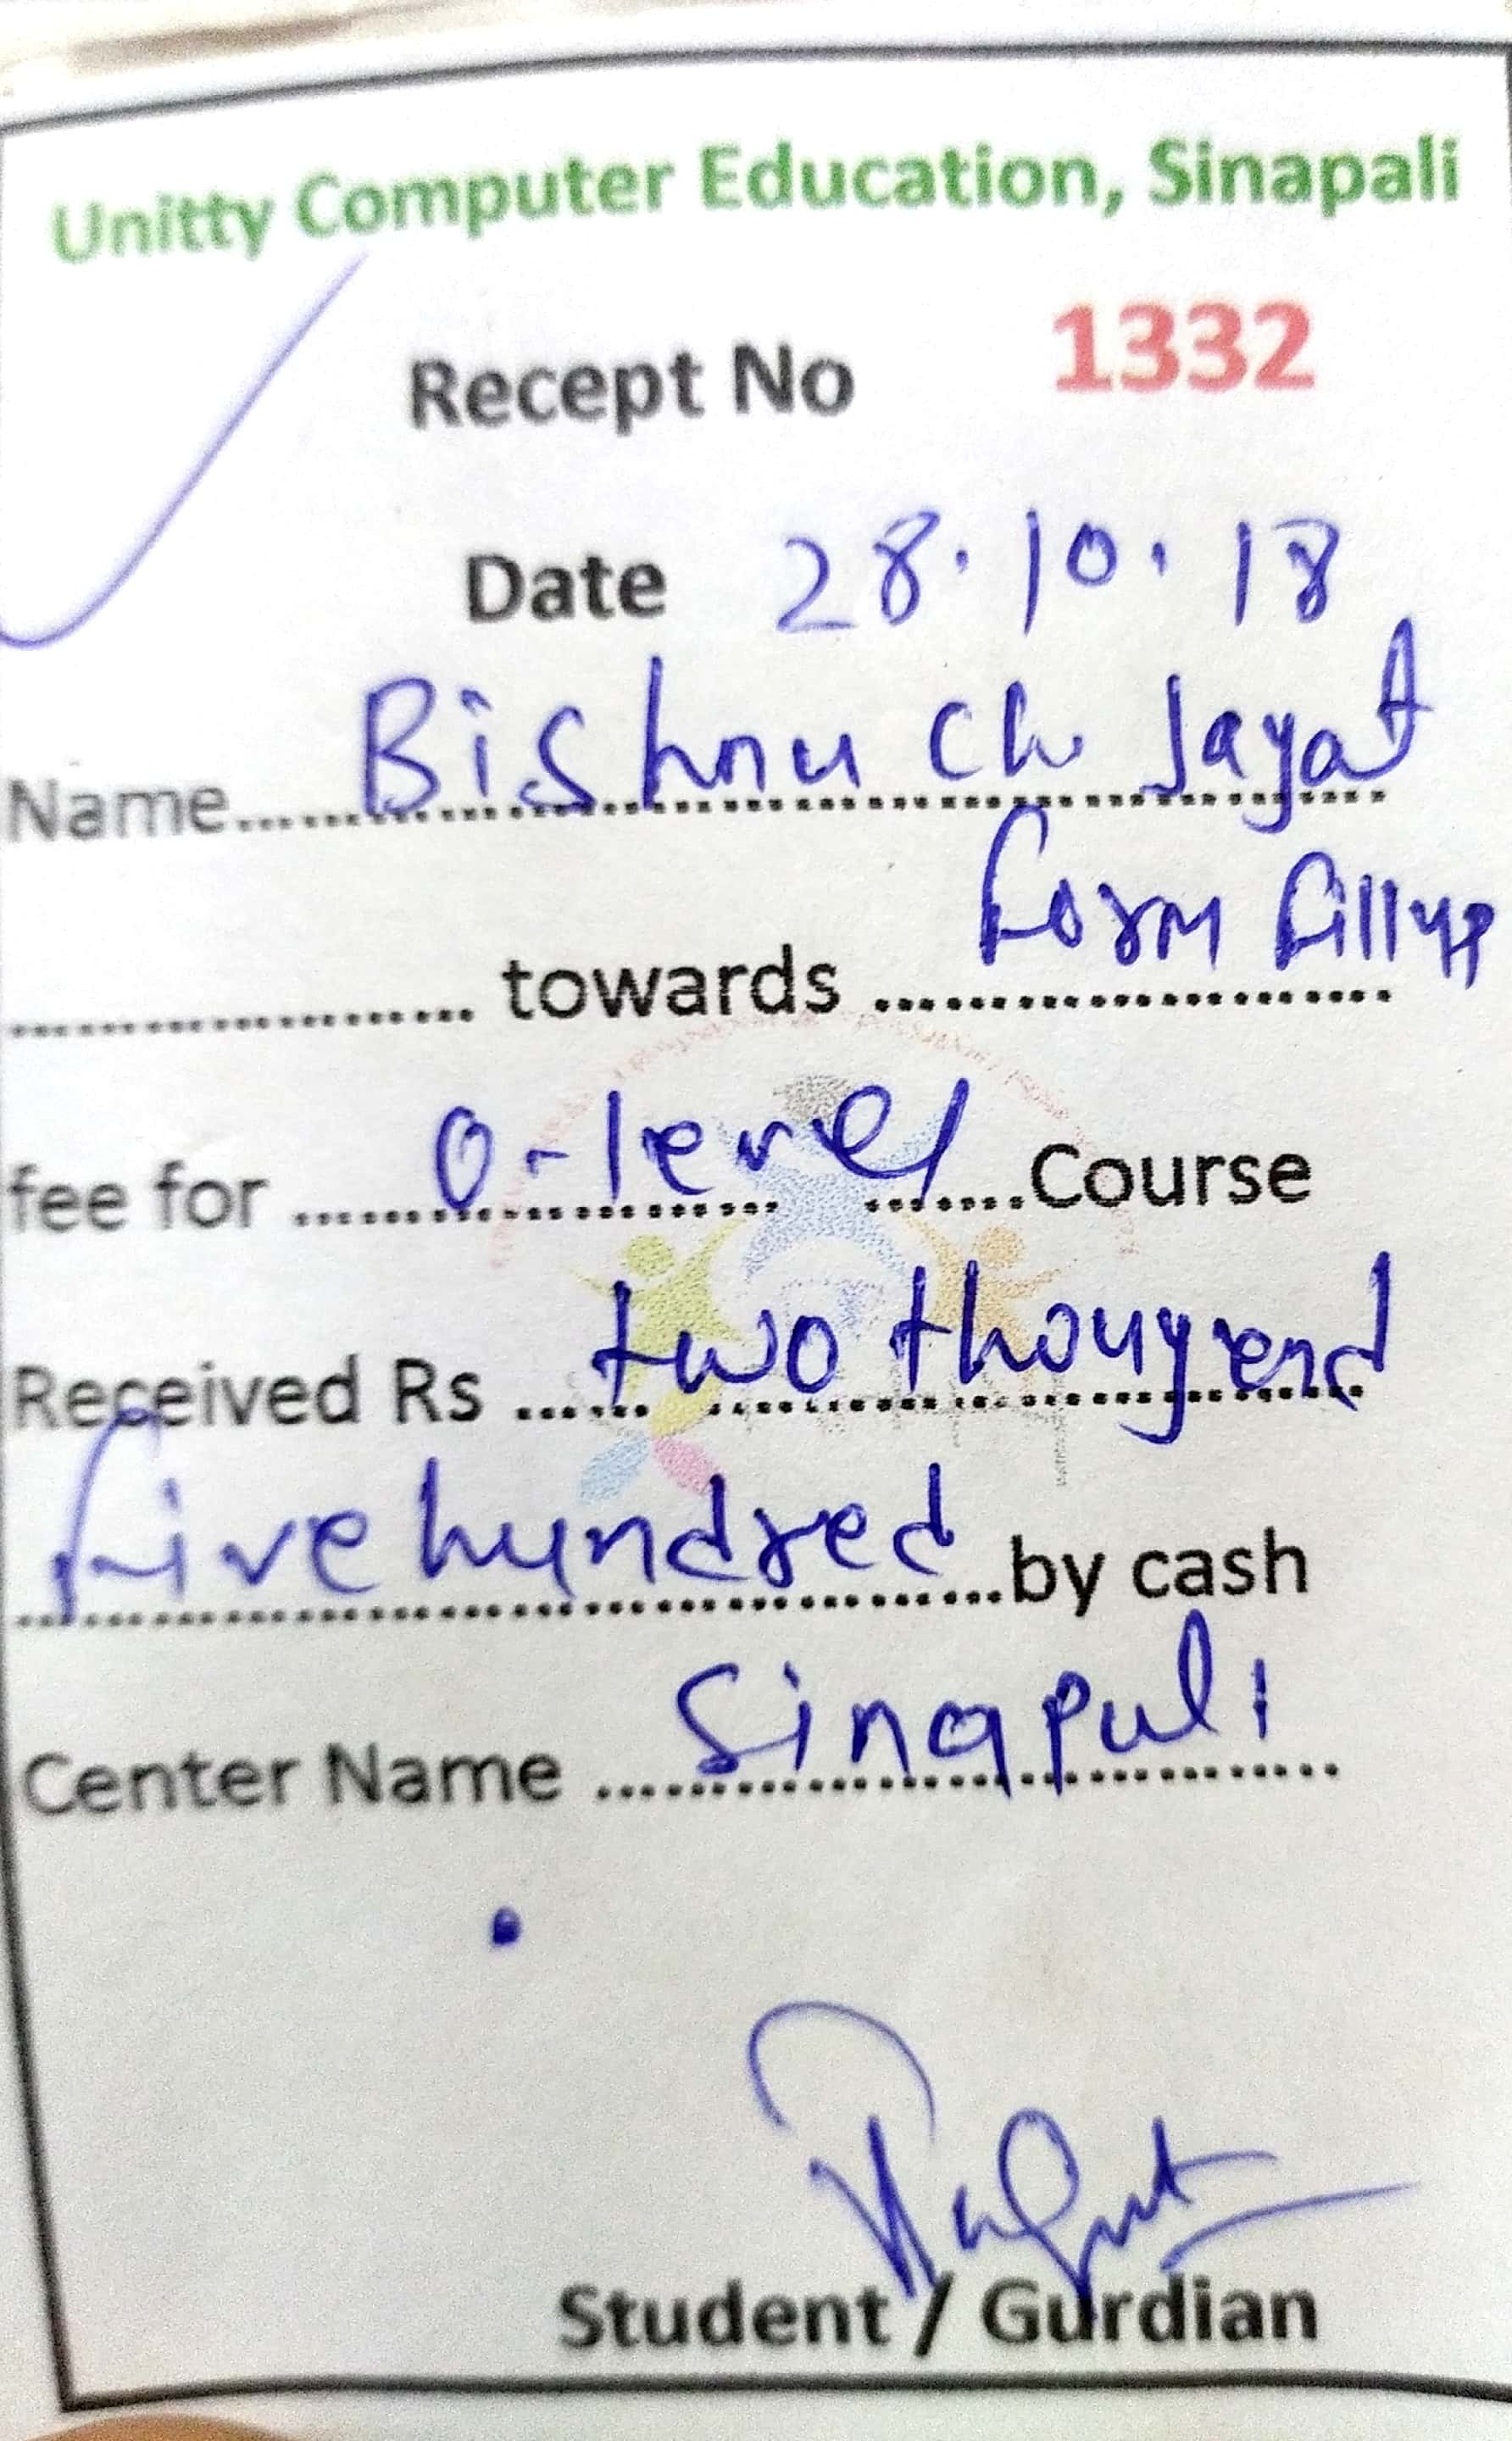 Unitty Computer Education, Sinapali
Recept No 1332
Date 28.10.18
Name........Bishnu Ch Jagat
form fillup
.................... towards ......................
fee for ......O-level.......Course
Received Rs ......two thousend
five hundred...by cash
Center Name ....Sinapali
Student / Gurdian